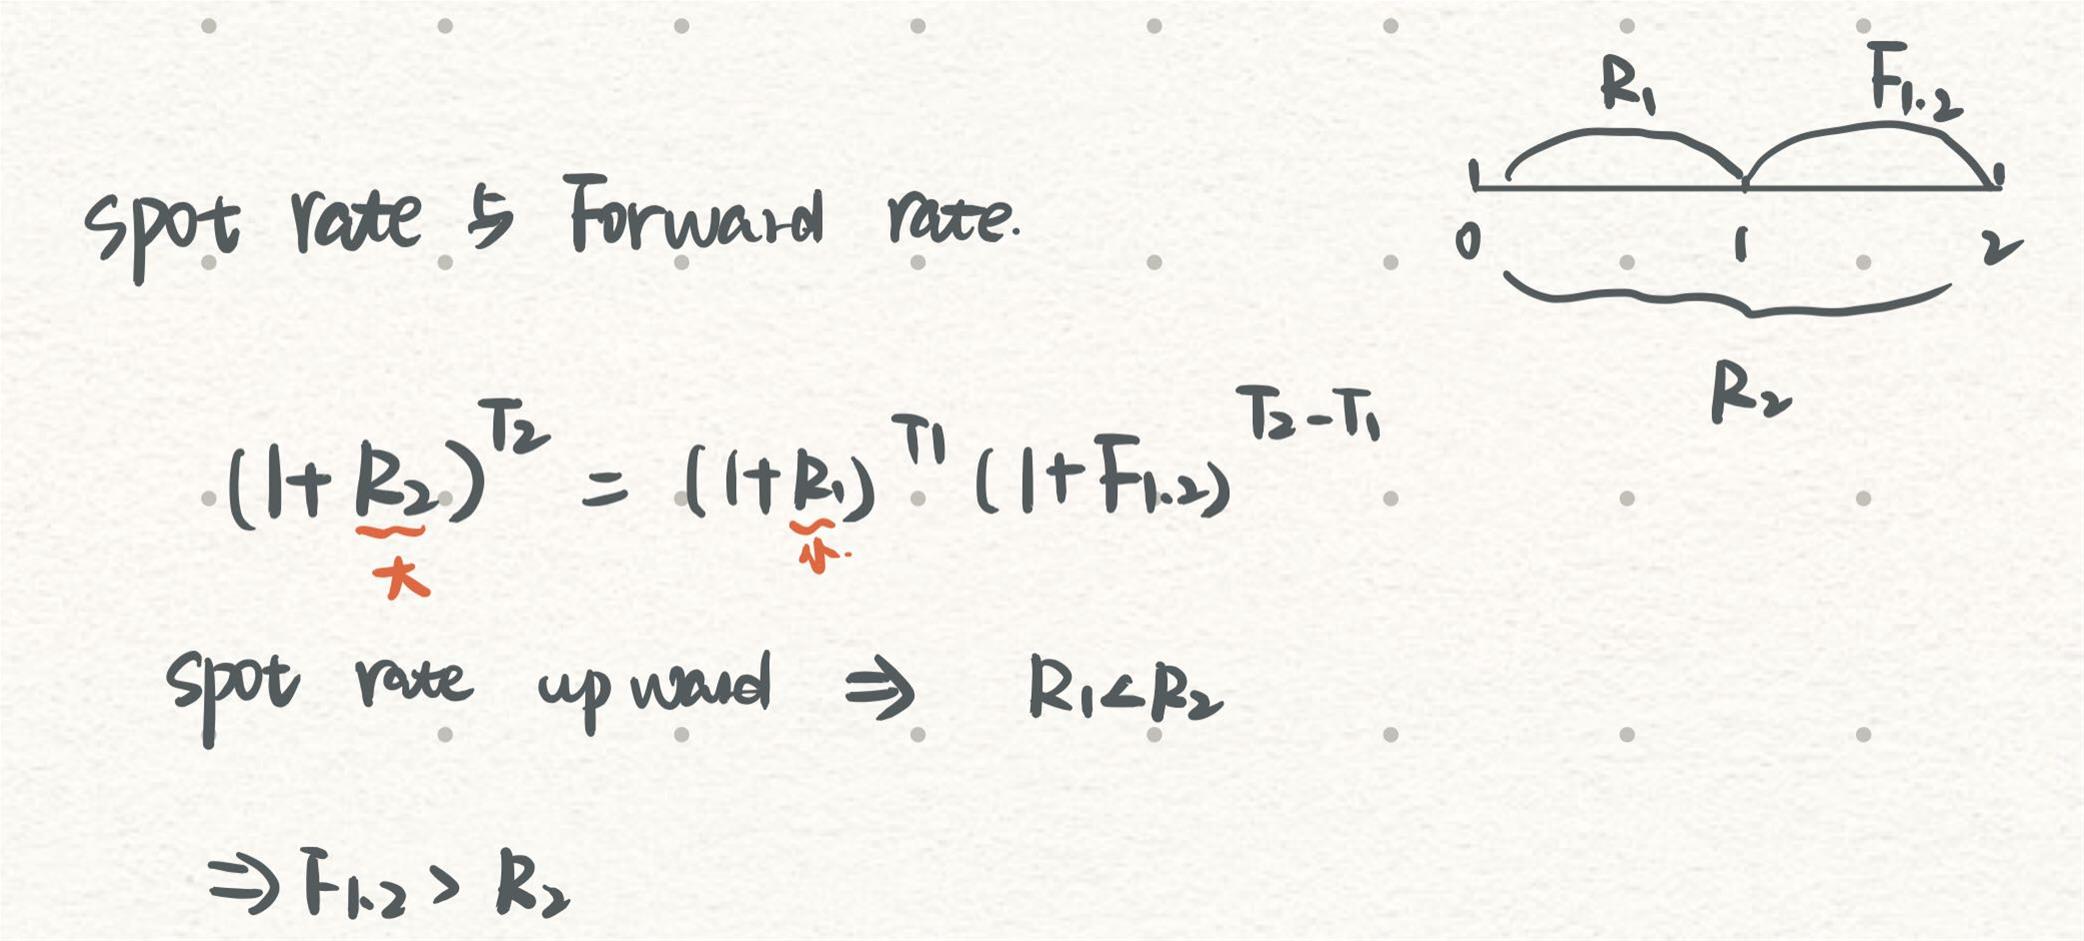 R₁ F₁.₂
spot rate 与 Forward rate.
0 1 2
R₂
(1+R₂)^T₂ = (1+R₁)^T1 (1+F₁.₂)^T₂-T₁
大 小.
spot rate upward ⇒ R₁<R₂
⇒ F₁.₂ > R₂